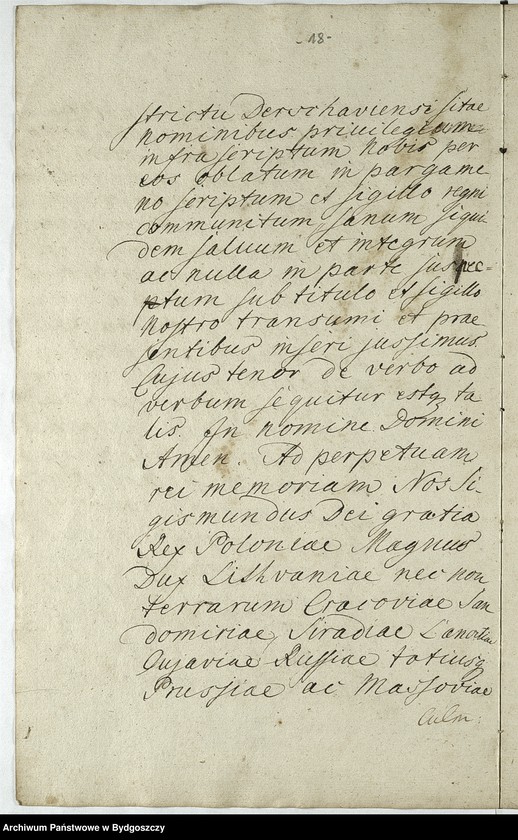 -18-
strictu Derschaviensi sitae
nominibus privilegium
infra scriptum nobis per
eos oblatum in pargame
no scriptum et sigillo regni
communitum, sanum siqui
dem salvum et integrum
ac nulla in parte suspec=
ptum sub titulo et sigillo
nostro transumi et prae
sentibus inseri jussimus
Cujus tenor de verbo ad
verbum sequitur estq ta
lis. In nomine Domini
Amen. Ad perpetuam
rei memoriam Nos Si-
gismundus Dei gratia
Rex Poloniae Magnus
Dux Lithvaniae nec non
terrarum Cracoviae San
domiriae, Siradiae Lanciciae
Cujaviae Russiae totiusq
Prussiae ac Massoviae
Culm:
Archiwum Państwowe w Bydgoszczy